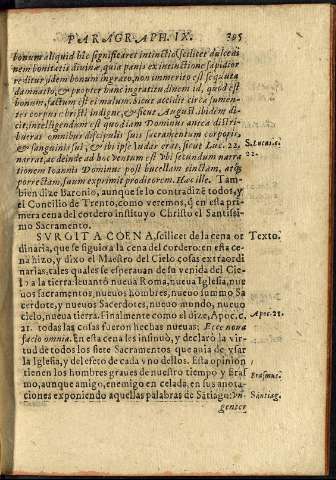 PARAGRAPH. IX. 395
bonum aliquid hic significaret intinctio, scilicet dulcedi
nem bonitatis divinæ, quia panis ex intinctione sapidior
redditur idem bonum ingrato, non immerito est sequuta
damnatio, & propter hanc ingratitudinem id, quod est
bonum, factum est ei malum. Sicut accidit circa sumen-
tes corpus Christi indigne, & sicut August. ibidem di-
cit, intelligendum est quod iam Dominus antea distri-
buerat omnibus discipulis suis sacramentum corporis,
& sanguinis sui, & ibi ipse Iudas erat, sicut Luc. 22.
S. Lucas. c. 22.
narrat, ac deinde ad hoc ventum est vbi secundum narra
tionem Ioannis Dominus post bucellam tinctam, atq;
porrectam, suum exprimit proditorem. Hæc ille. Tam-
bien dize Baronio, aunque se lo contradizē todos, y
el Concilio de Trento, como veremos, q̃ en esta pri-
mera cena del cordero instituyo Christo el Santissi-
mo Sacramento.
SVRGIT A COENA, scilicet de la cena or
Texto.
dinaria, que se siguio a la cena del cordero: en esta ce
na hizo, y dixo el Maestro del Cielo cosas extraordi
narias, tales quales se esperauan de su venida del Cie-
lo a la tierra: leuantò nueua Roma, nueua Iglesia, nue
uos sacramentos, nueuos hombres, nueuo summo Sa
cerdote, y nueuos Sacerdotes, nueuo mundo, nueuo
cielo, nueua tierra. Finalmente como el dize, Apoc. c.
Apoc. 21.
21. todas las cosas fueron hechas nueuas: Ecce noua
facio omnia. En esta cena les insinuò, y declarò la vir-
tud de todos los siete Sacramentos que auia de vsar
la Iglesia, y del efeto de cada vno dellos. Esta opinion
tienen los hombres graues de nuestro tiempo y Eras
Erasmus.
mo, aunque amigo, enemigo en celada, en sus anota-
ciones exponiendo aquellas palabras de Sātiago: Vn-
Santiag.
gentes